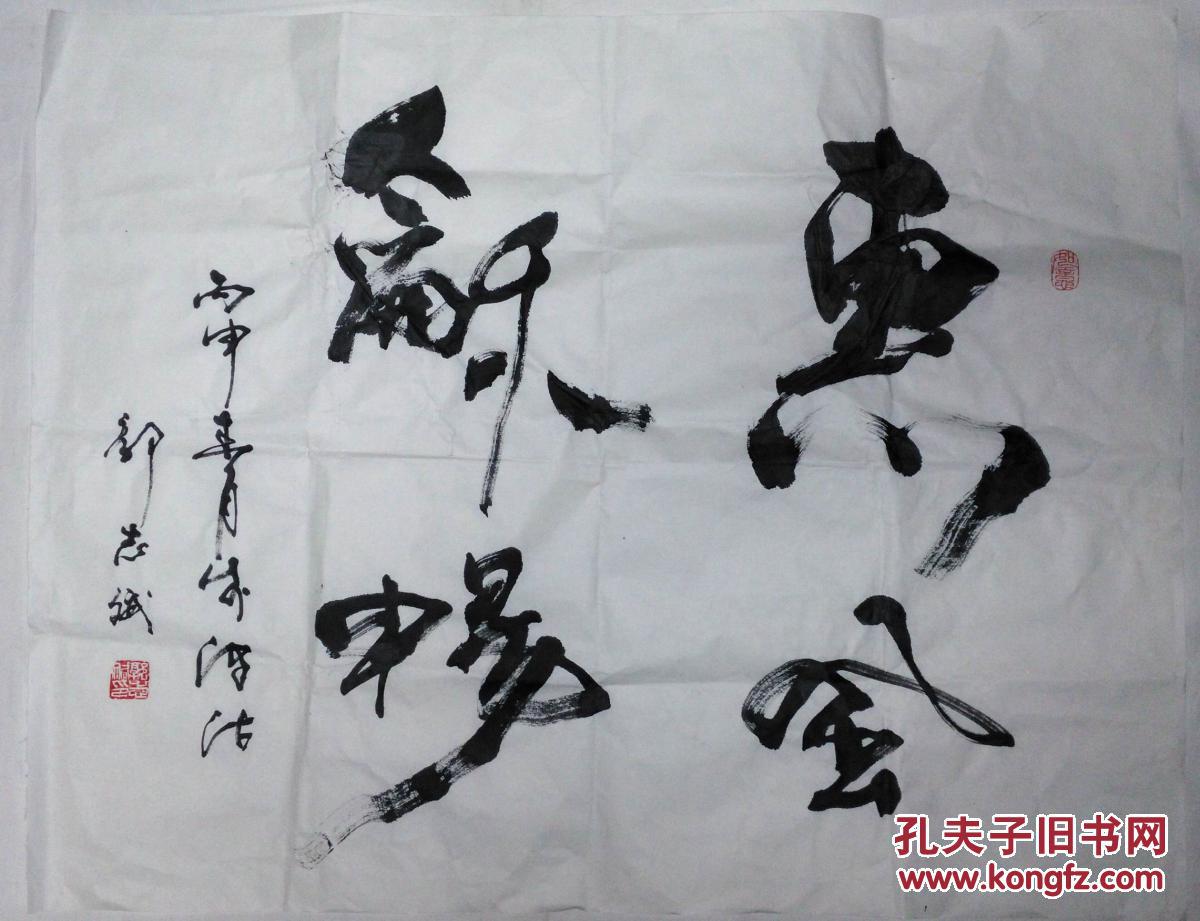 惠风
龢畅
丙申春月于津沽
郭志斌
孔夫子旧书网
www.kongfz.com